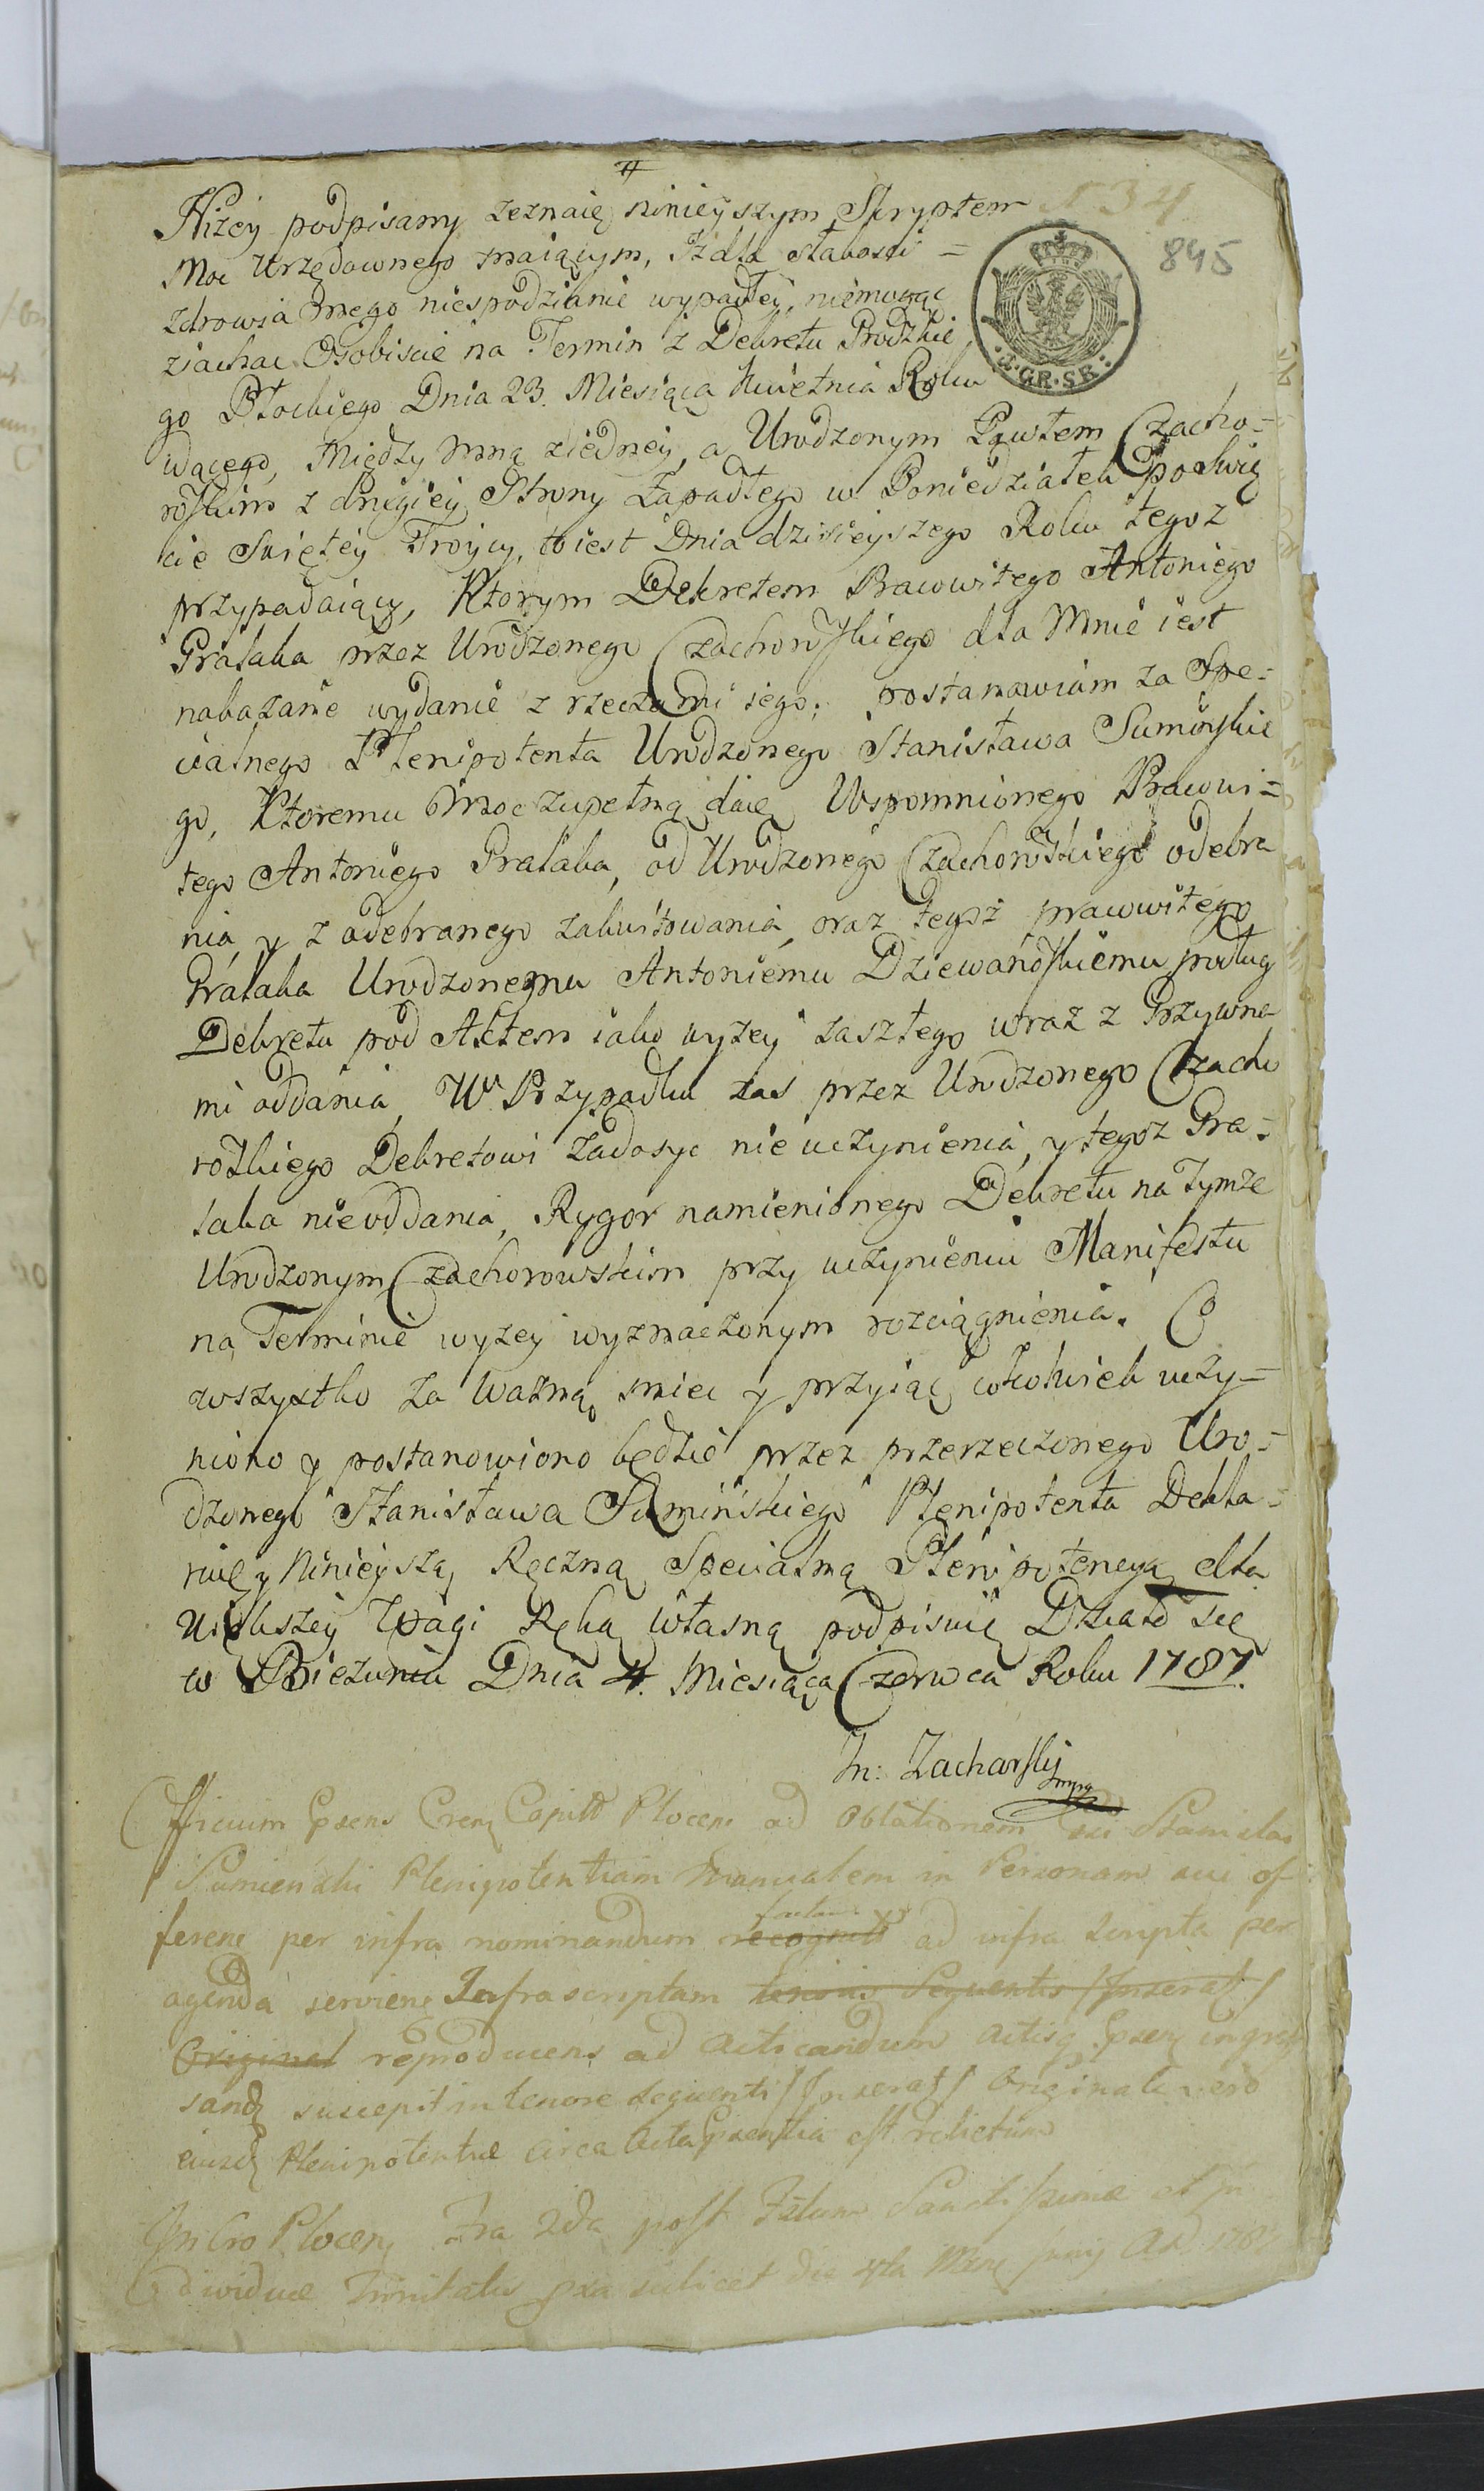 Niżey podpisany zeznaię ninieyszym Skryptem N 34
Moc Urzędownego maiącym, Iż dla słabości = 895
zdrowia mego niespodzianie wypadłey, niemogąc
ziachac Osobiscie na Termin z Dekretu Grodzkie
·3·GR·SR·
go Płockiego Dnia 23. Miesiąca Kwietnia Roku
idącego, Między mną ziedney, a Urodzonym Pawłem Czacho=
rowskim z drugiey Strony Zapadłego w Poniedziałek po Swię
cie Swiętey Troycy, to iest Dnia dzisieyszego Roku tegoz
przypadaiący, Ktorym Dekretem Pracowitego Antoniego
Prataka przez Urodzonego Czachorowskiego dla Mnie iest
nakazane wydanie z rzeczami iego; postanawiam za Spe=
cialnego Plenipotenta Urodzonego Stanisława Suminskie
go, Ktoremu Moc zupełną daię Wspomnionego Pracowi=
tego Antoniego Prataka, od Urodzonego Czachorowskiego odebra
nia, y z odebranego zakwitowania, oraz tegoż pracowitego
Prataka Urodzonemu Antoniemu Dziewanowskiemu podług
Dekretu pod Aktem iako wyżey zaszłego wraz z Grzywna
mi oddania, W Przypadku zas przez Urodzonego Czacho
rowskiego Dekretowi Zadosyc nie uczynienia, y tegoz Pra=
taka nieoddania, Rygor namienionego Dekretu na Tymze
Urodzonym Czachorowskim przy uczynieniu Manifestu
na Terminie wyżey wyznaczonym rozciągnienia. Co
wszystko za Ważną miec y przyiąc cożkolwiek uczy=
niono y postanowiono będzie przez przerzeczonego Uro=
dzonego Stanisława Sumińskiego Plenipotenta Dekla=
ruię y Ninieyszą Ręczną Specialną Plenipotencyą dla
Większey Wagi Ręką własną podpisuię Działo się
w Bieżuniu Dnia 4. Miesiąca Czerwca Roku 1787.
In: Zacharski
mpp
Officium Psens Crens Capitt Plocens ad Oblationem Stanislai
Sumienski Plenipotentiam Manualem in Personam sui of
ferens per infra nominandum recognit factam ad infra scripta per
agenda serviens Infrascriptam tenoris Sequentis /Inserat/
Original reproducens ad acticandum actisq Psen ingros
sand suscepit in tenore sequenti /Inserat/ Originale vero
eiusd Plenipotentiae circa Acta Psentia est relictum
In Cro Plocen Fra 2da post Festum Sanctissimae et In
dividuae Trinitatis pxa scilicet die 4ta Mens Junij A D 1787